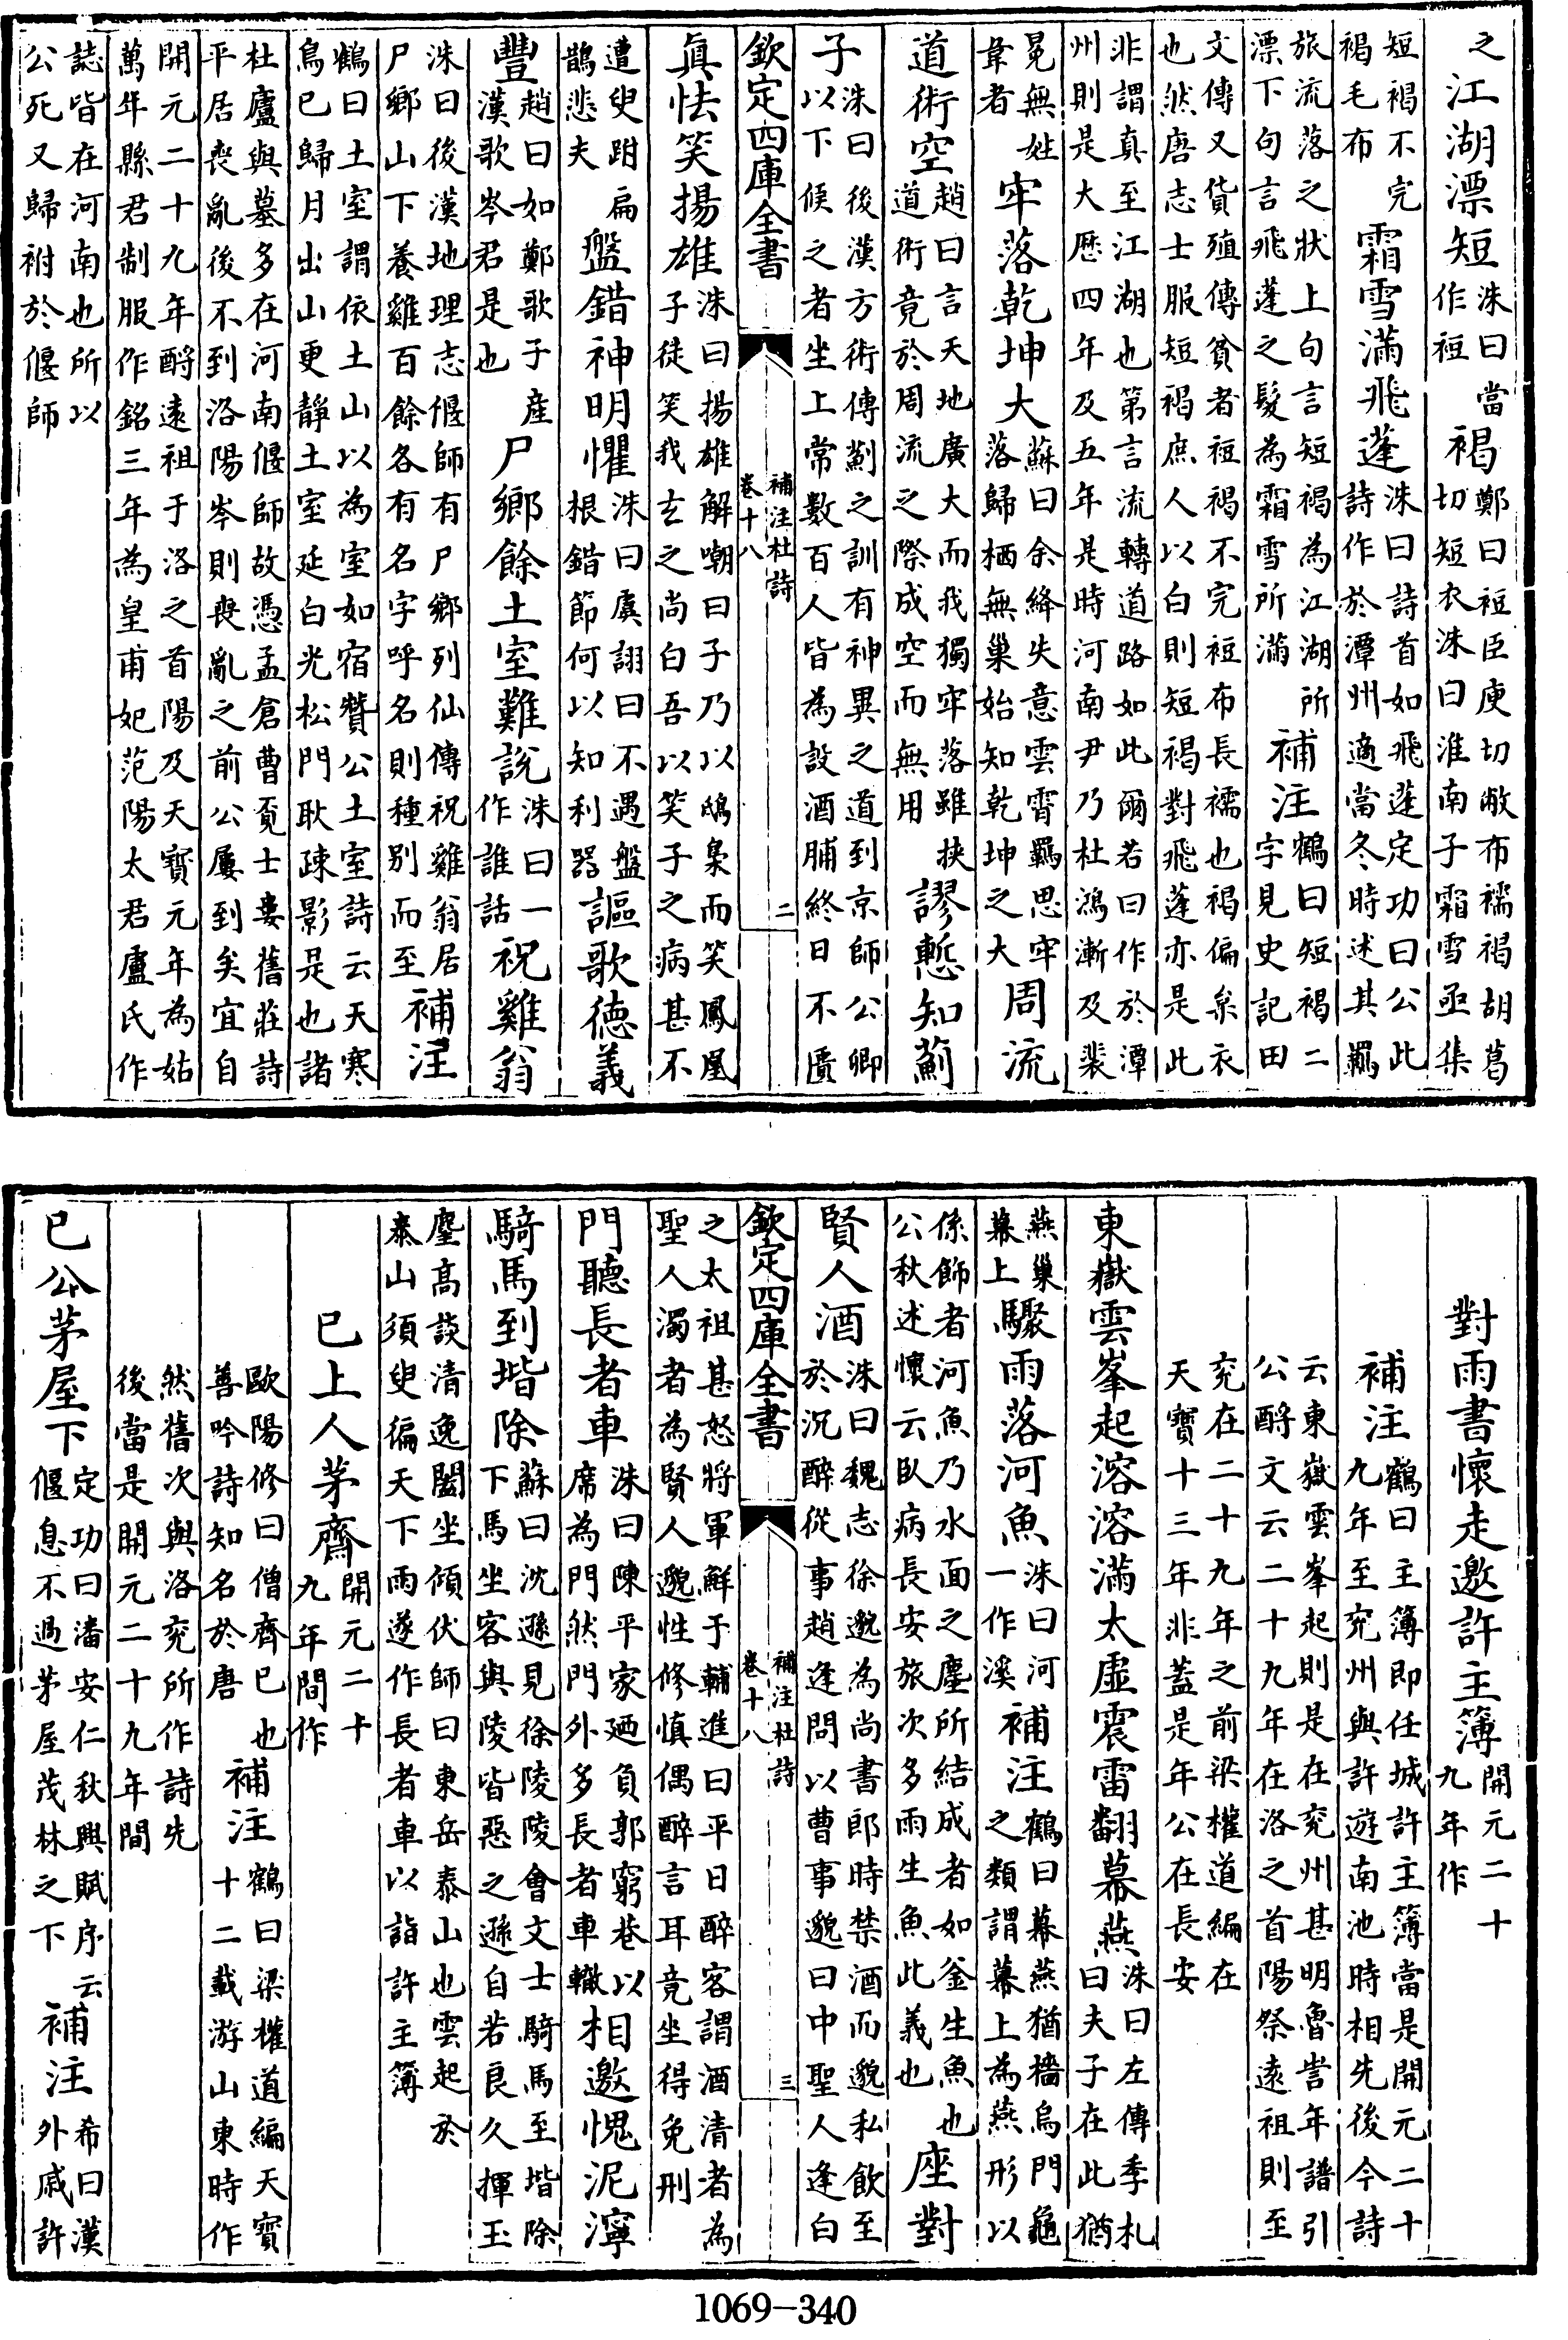 之江湖漂短洙曰當作裋褐鄭曰裋臣庾切敝布襦褐胡葛切短衣洙曰淮南子霜雪亟集
短褐不完褐毛布霜雪滿飛蓬洙曰詩首如飛蓬定功曰公此詩作於潭州適當冬時述其羈
旅流落之狀上句言短褐為江湖所漂下句言飛蓬之髮為霜雪所滿補注鶴曰短褐二字見史記田
文傳又貨殖傳貧者裋褐不完裋布長襦也褐偏枲衣也然唐志士服短褐庶人以白則短褐對飛蓬亦是此
非謂真至江湖也第言流轉道路如此爾若曰作於潭州則是大厯四年及五年是時河南尹乃杜鴻漸及裴
冕無姓韋者牢落乾坤大蘇曰余絳失意雲霄羈思牢落歸栖無巢始知乾坤之大周流
道術空趙曰言天地廣大而我獨牢落雖挾道術竟於周流之際成空而無用謬慙知薊
子洙曰後漢方術傳薊之訓有神異之道到京師公卿以下候之者坐上常數百人皆為設酒脯終日不匱
欽定四庫全書 補注杜詩 卷十八 二
真怯笑揚雄洙曰揚雄解嘲曰子乃以鴟梟而笑鳳凰子徒笑我玄之尚白吾以笑子之病甚不
遭臾跗扁鵲悲夫盤錯神明懼洙曰虞詡曰不遇盤根錯節何以知利器謳歌德義
豐趙曰如鄭歌子產漢歌岑君是也尸鄉餘土室難說洙曰一作誰話祝雞翁
洙曰後漢地理志偃師有尸鄉列仙傳祝雞翁居尸鄉山下養雞百餘各有名字呼名則種別而至補注
鶴曰土室謂依土山以為室如宿贊公土室詩云天寒鳥已歸月出山更靜土室延白光松門耿疎影是也諸
杜廬與墓多在河南偃師故憑孟倉曹覓士婁舊莊詩平居喪亂後不到洛陽岑則喪亂之前公屢到矣宜自
開元二十九年酹遠祖于洛之首陽及天寳元年為姑萬年縣君制服作銘三年為皇甫妃范陽太君盧氏作
誌皆在河南也所以公死又歸祔於偃師
對雨書懷走邀許主簿開元二十九年作
補注鶴曰主簿即任城許主簿當是開元二十九年至兖州與許遊南池時相先後今詩
云東嶽雲峯起則是在兖州甚明魯訔年譜引公酹文云二十九年在洛之首陽祭遠祖則至
兖在二十九年之前梁權道編在天寳十三年非蓋是年公在長安
東嶽雲峯起溶溶滿太虛震雷翻幕燕洙曰左傳季札曰夫子在此猶
燕巢幕上驟雨落河魚洙曰河一作溪補注鶴曰幕燕猶檣烏門龜之類謂幕上為燕形以
係飾者河魚乃水面之塵所結成者如釜生魚也公秋述懷云臥病長安旅次多雨生魚此義也座對
賢人酒洙曰魏志徐邈為尚書郎時禁酒而邈私飲至於沉醉從事趙逵問以曹事邈曰中聖人逵白
欽定四庫全書 補注杜詩 卷十八 三
之太祖甚怒將軍鮮于輔進曰平日醉客謂酒清者為聖人濁者為賢人邈性修慎偶醉言耳竟坐得免刑
門聽長者車洙曰陳平家廼負郭窮巷以席為門然門外多長者車轍相邀愧泥濘
騎馬到堦除蘇曰沈遜見徐陵陵會文士騎馬至堦除下馬坐客與陵皆惡之遜自若良久揮玉
麈高談清逸闔坐傾伏師曰東岳泰山也雲起於泰山須臾徧天下雨遂作長者車以詣許主簿
已上人茅齋開元二十九年間作
歐陽修曰僧齊已也善吟詩知名於唐補注鶴曰梁權道編天寳十二載游山東時作
然舊次與洛兖所作詩先後當是開元二十九年間
已公茅屋下定功曰潘安仁秋興賦序云偃息不過茅屋茂林之下補注希曰漢外戚許
1069-340